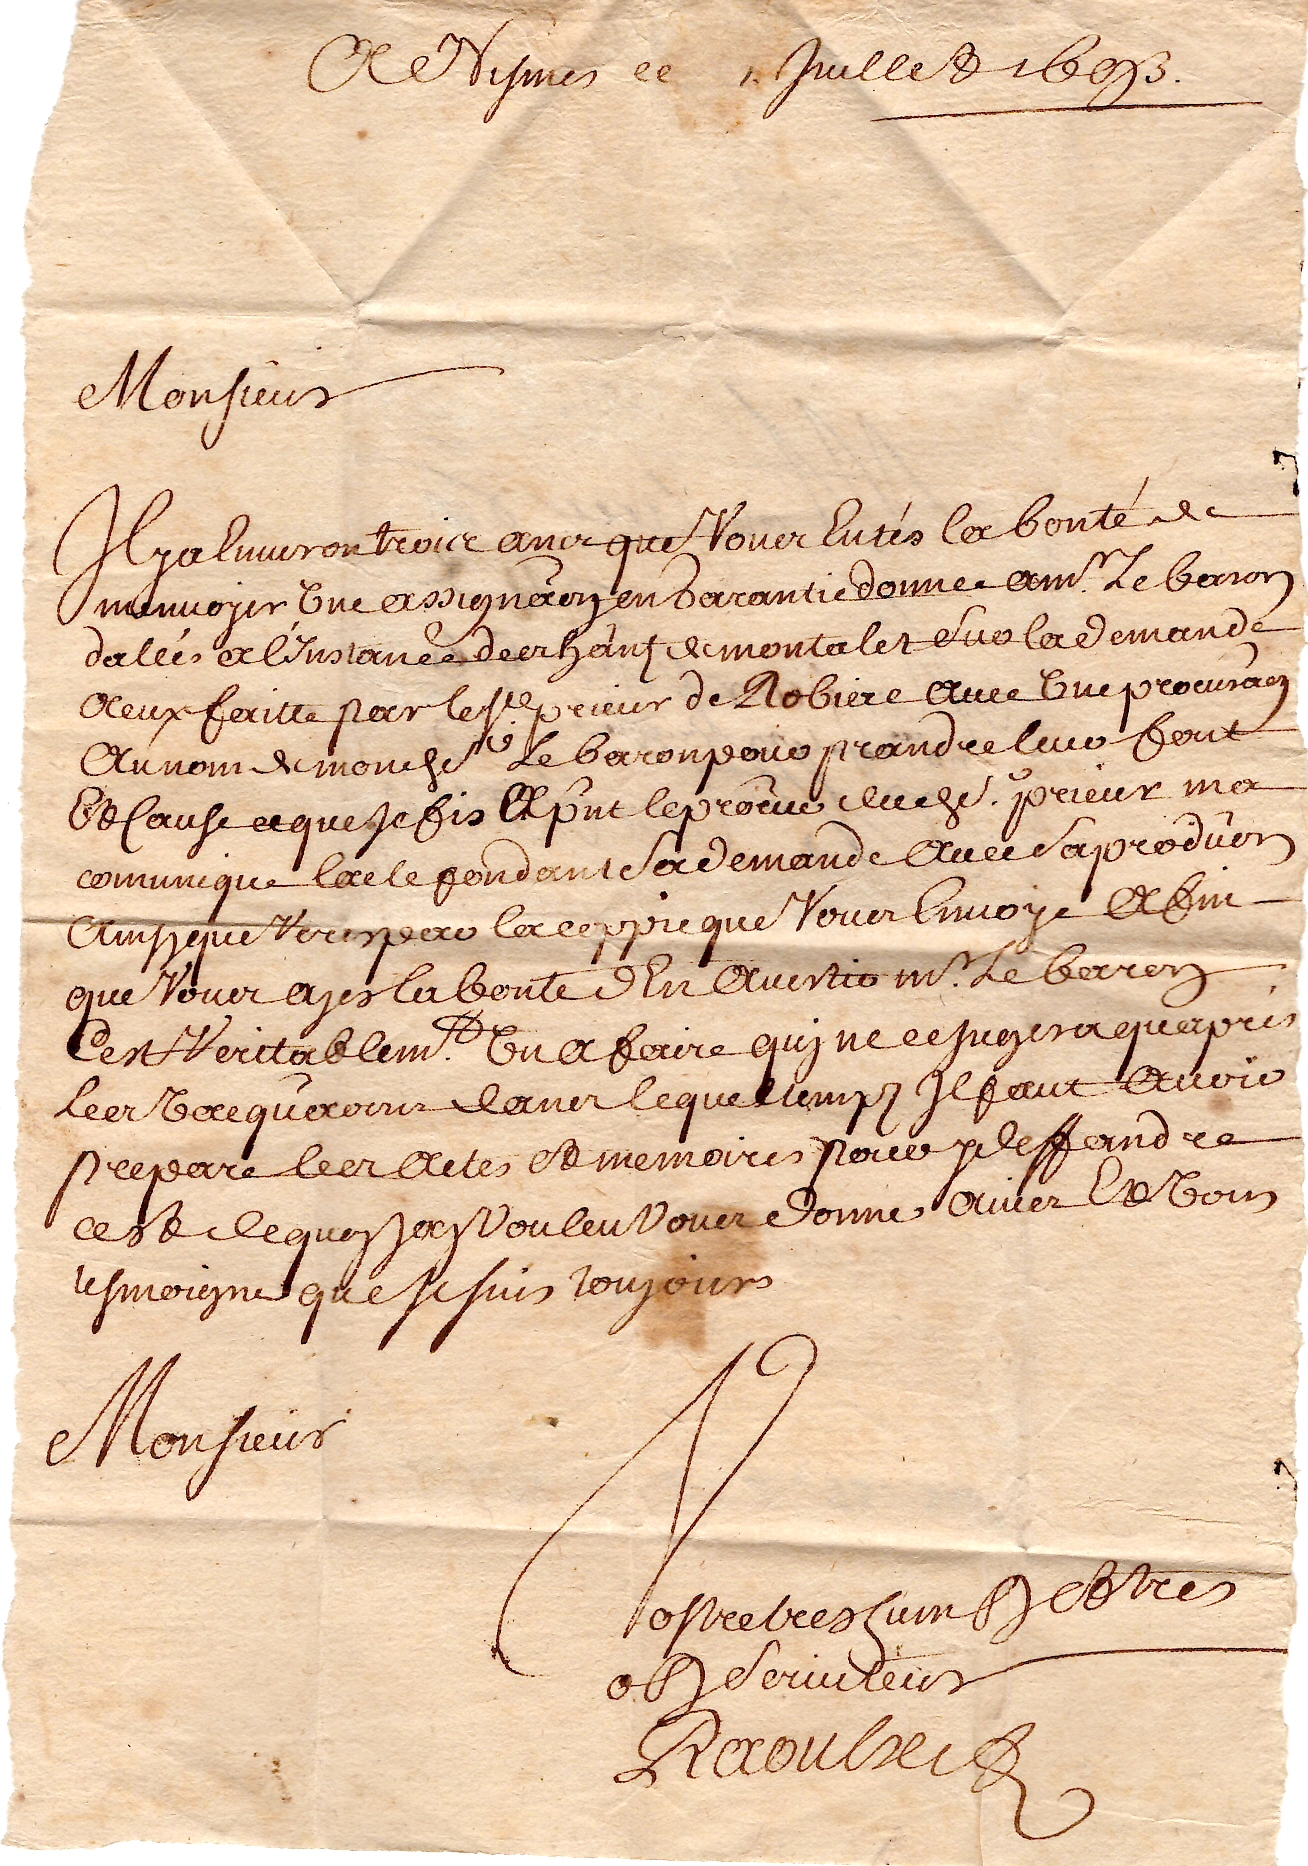 A Nysmes ce 1 Juillet 1693.
Monsieur
Il ya Environ trois ans que Vous Eutés la bonté de
menvoyer Une assignaon en garantie donnee a mr. Le baron
dalés a l'Instance des de montalet sur la demande
a eux faitte par le sr. prieur de Robiac avec Une procuraon
au nom de mondt sr. Le baron pour prandre leur fait
Et Cause ce que Je fis Et pnt le procur dudt sr. prieur ma
comunique lacte fondant sa demande avec sa produon
Ainsy que Verres par la coppie que Vous Envoye Afin
que Vous ayes la bonte dEn Avertir mr. Le baron
Cest Veritablemt. Un afaire quy ne ce Jugera quapres
les Vacquaons dans lequel temps Il faut Avoir
prepare les Actes Et memoires pour y deffandre
cest de quoy Jay Voulleu Vous donner Avis Et Vous
tesmoigner que Je suis toujours
Monsieur
Vostre tres humb Et tres
ob Serviteur
Raoulx